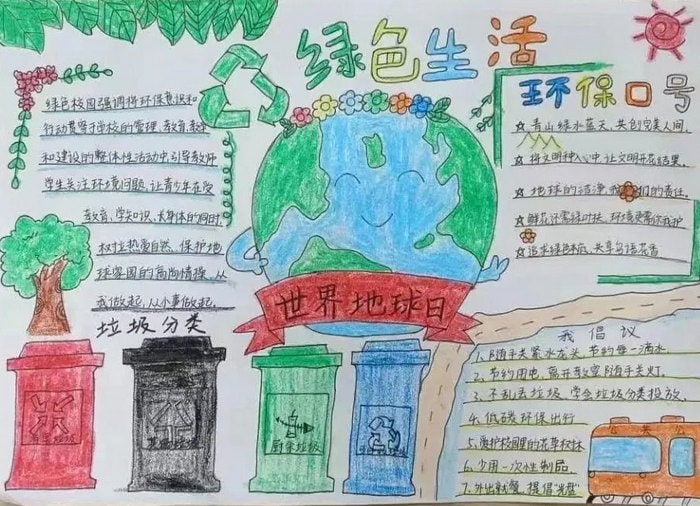 绿色生活
绿色校园强调将环保意识和
行动贯穿于学校的管理、教育、教学
和建设的整体性活动中,引导教师、
学生关注环境问题,让青少年在受
教育、学知识、长身体的同时,
树立热爱自然、保护地
球家园的高尚情操。从
我做起,从小事做起。
环保口号
青山绿水蓝天,共创完美人间。
将文明种心中,让文明开花结果。
地球的洁净,我们的责任。
鲜花还需绿叶扶,环境更需你我护
追求绿色时尚,共享鸟语花香
世界地球日
垃圾分类
有害垃圾
其他垃圾
厨余垃圾
我倡议
1、随手关紧水龙头,节约每一滴水。
2、节约用电,离开教室随手关灯。
3、不乱丢垃圾,学会垃圾分类投放。
4、低碳环保出行
5、爱护校园里的花草树林
6、少用一次性制品
7、外出就餐,提倡"光盘"